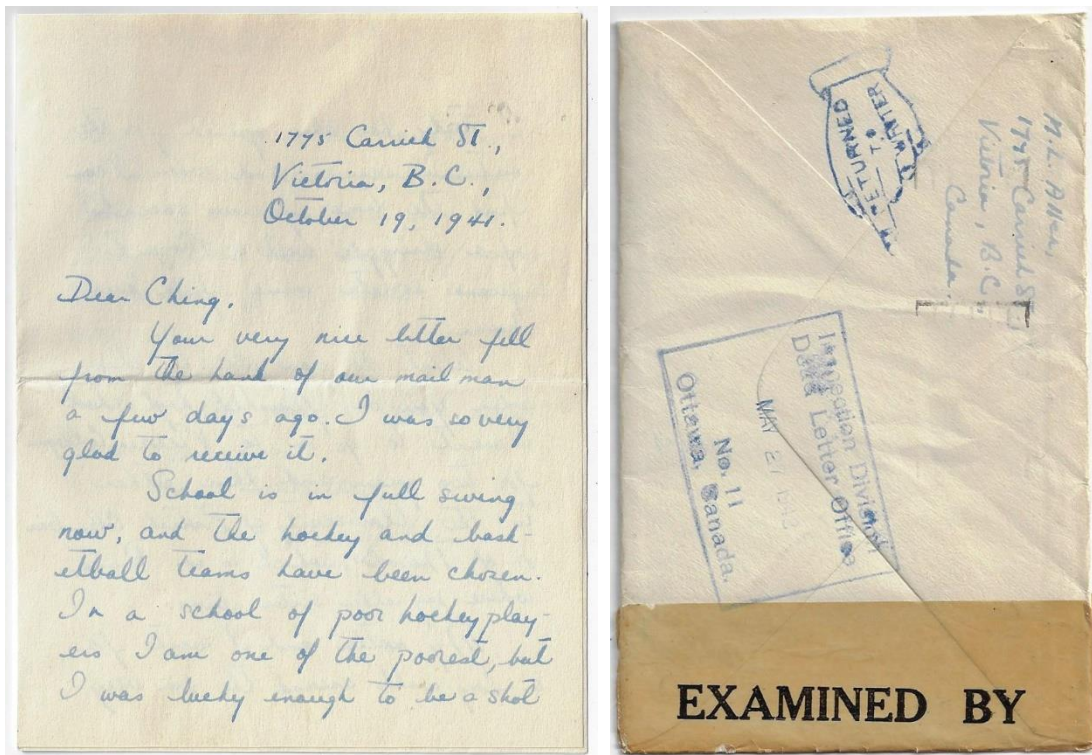 1775 Carrick St.,
Victoria, B.C.,
October 19, 1941.
Dear Ching,
Your very nice letter fell
from the hand of our mail man
a few days ago. I was so very
glad to receive it.
School is in full swing
now, and the hockey and bask-
etball teams have been chosen.
In a school of poor hockey play-
ers I am one of the poorest, but
I was lucky enough to be a shot
RETURNED
TO
WRITER
M. L.
1775 Carrick St
Victoria, B.C.,
Canada.
Inspection Division
Dead Letter Office
MAY 27
No. 11
Ottawa, Canada.
EXAMINED BY